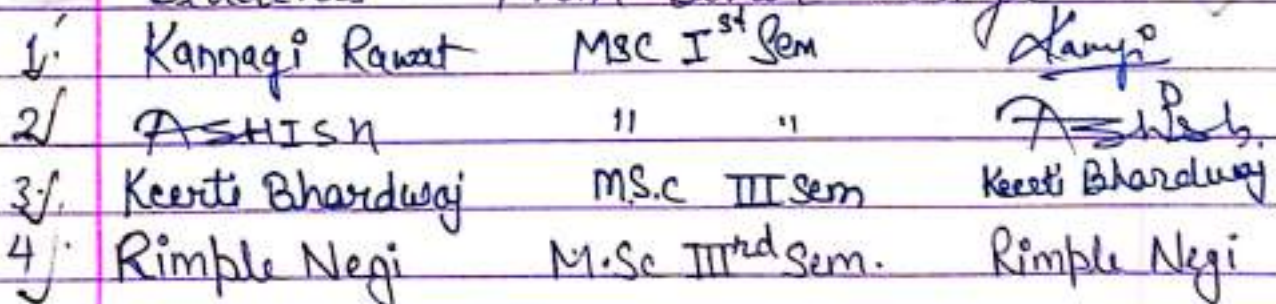 1. Kannagi Rawat MSC Ist Sem
2 ASHISH " " Ashish.
3. Keerti Bhardwaj M.S.C III Sem Keerti Bhardwaj
4. Rimple Negi M.Sc IIIrd Sem. Rimple Negi